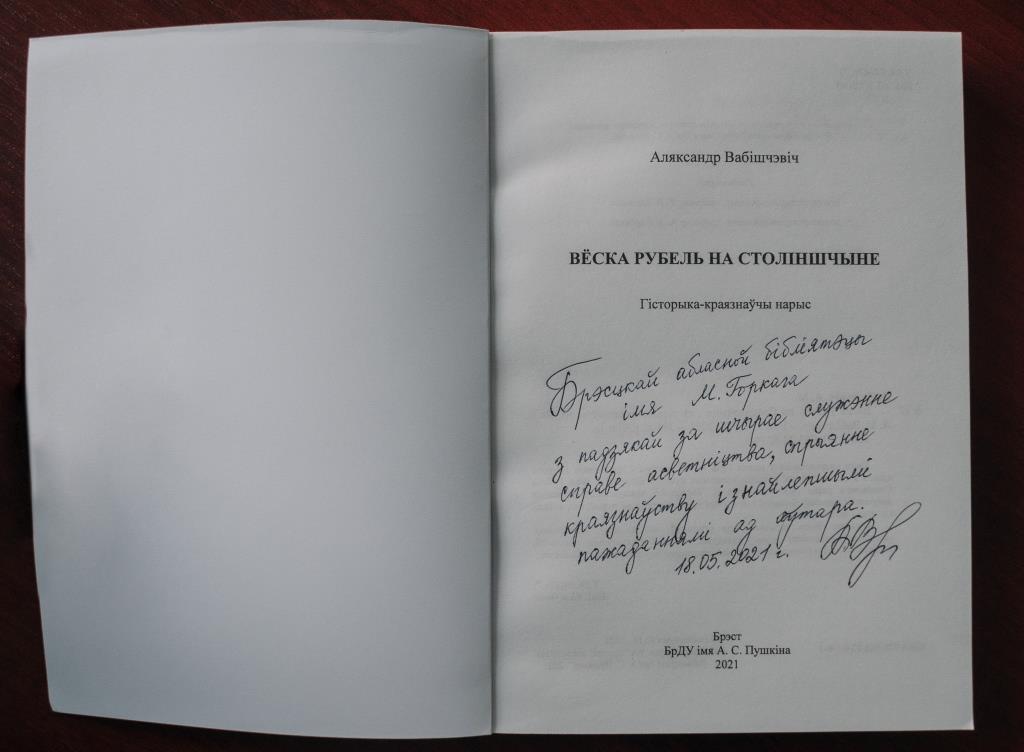 Аляксандр Вабішчэвіч
ВЁСКА РУБЕЛЬ НА СТОЛІНШЧЫНЕ
Гісторыка-краязнаўчы нарыс
Брэсцкай абласной бібліятэцы
імя М. Горкага
з падзякай за шчырае служэнне
справе асветніцтва, спрыянне
краязнаўству і з найлепшымі
пажаданнямі ад аўтара.
18.05.2021 г.
Брэст
БрДУ імя А. С. Пушкіна
2021